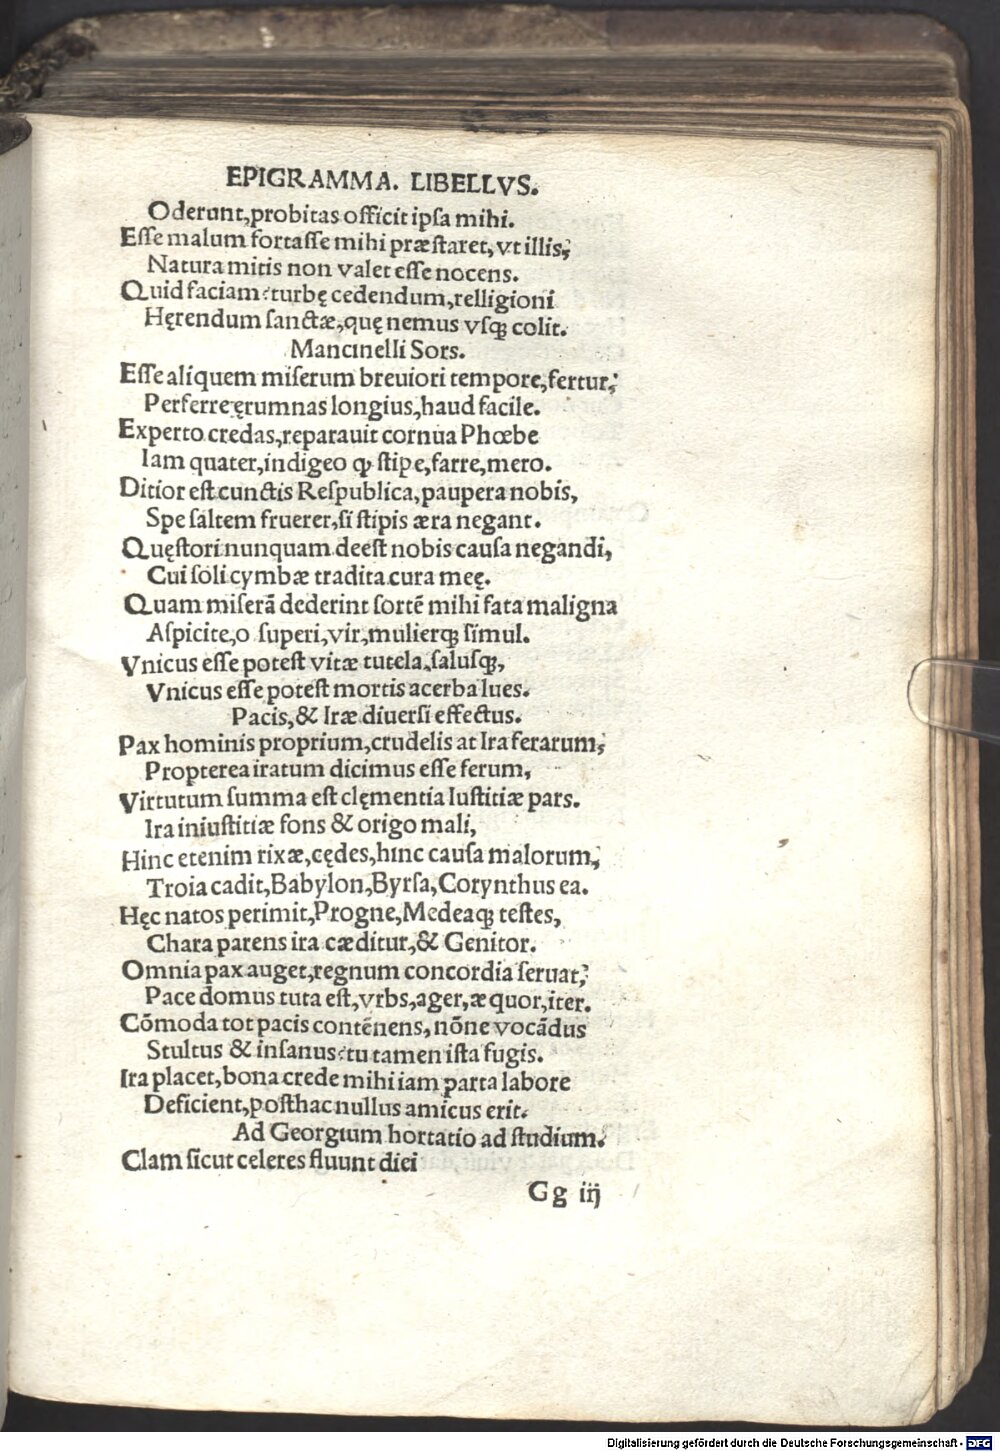 EPIGRAMMA. LIBELLVS.
Oderunt,probitas officit ipſa mihi.
Eſſe malum fortaſſe mihi præſtaret, vt illis;
Natura mitis non valet eſſe nocens.
Quid faciam?turbę cedendum,relligioni
Hęrendum ſanctæ,quę nemus vſqꝫ colit.
Mancinelli Sors.
Eſſe aliquem miſerum breuiori tempore,fertur;
Perferre ęrumnas longius,haud facile.
Experto credas,reparauit cornua Phœbe
Iam quater,indigeo qꝫ ſtipe,farre,mero.
Ditior eſt cunctis Reſpublica,paupera nobis,
Spe ſaltem fruerer,ſi ſtipis æra negant.
Quęſtori nunquam deeſt nobis cauſa negandi,
Cui ſoli cymbæ tradita cura meę.
Quam miſerā dederint ſortē mihi fata maligna
Aſpicite,o ſuperi,vir,mulierqꝫ ſimul.
Vnicus eſſe poteſt vitæ tutela,ſaluſqꝫ,
Vnicus eſſe poteſt mortis acerba lues.
Pacis,& Iræ diuerſi effectus.
Pax hominis proprium,crudelis at Ira ferarum;
Propterea iratum dicimus eſſe ferum,
Virtutum ſumma eſt clęmentia Iuſtitiæ pars.
Ira iniuſtitiæ fons & origo mali,
Hinc etenim rixæ,cędes,hinc cauſa malorum;
Troia cadit,Babylon,Byrſa,Corynthus ea.
Hęc natos perimit,Progne,Medeaqꝫ teſtes,
Chara parens ira cæditur,& Genitor.
Omnia pax auget,regnum concordia ſeruat;
Pace domus tuta eſt,vrbs,ager,æquor,iter.
Cōmoda tot pacis contēnens, nōne vocādus
Stultus & inſanus?tu tamen iſta fugis.
Ira placet,bona crede mihi iam parta labore
Deficient,poſthac nullus amicus erit.
Ad Georgium hortatio ad ſtudium.
Clam ſicut celeres fluunt diei
Gg iij
Digitalisierung gefördert durch die Deutsche Forschungsgemeinschaft - DFG